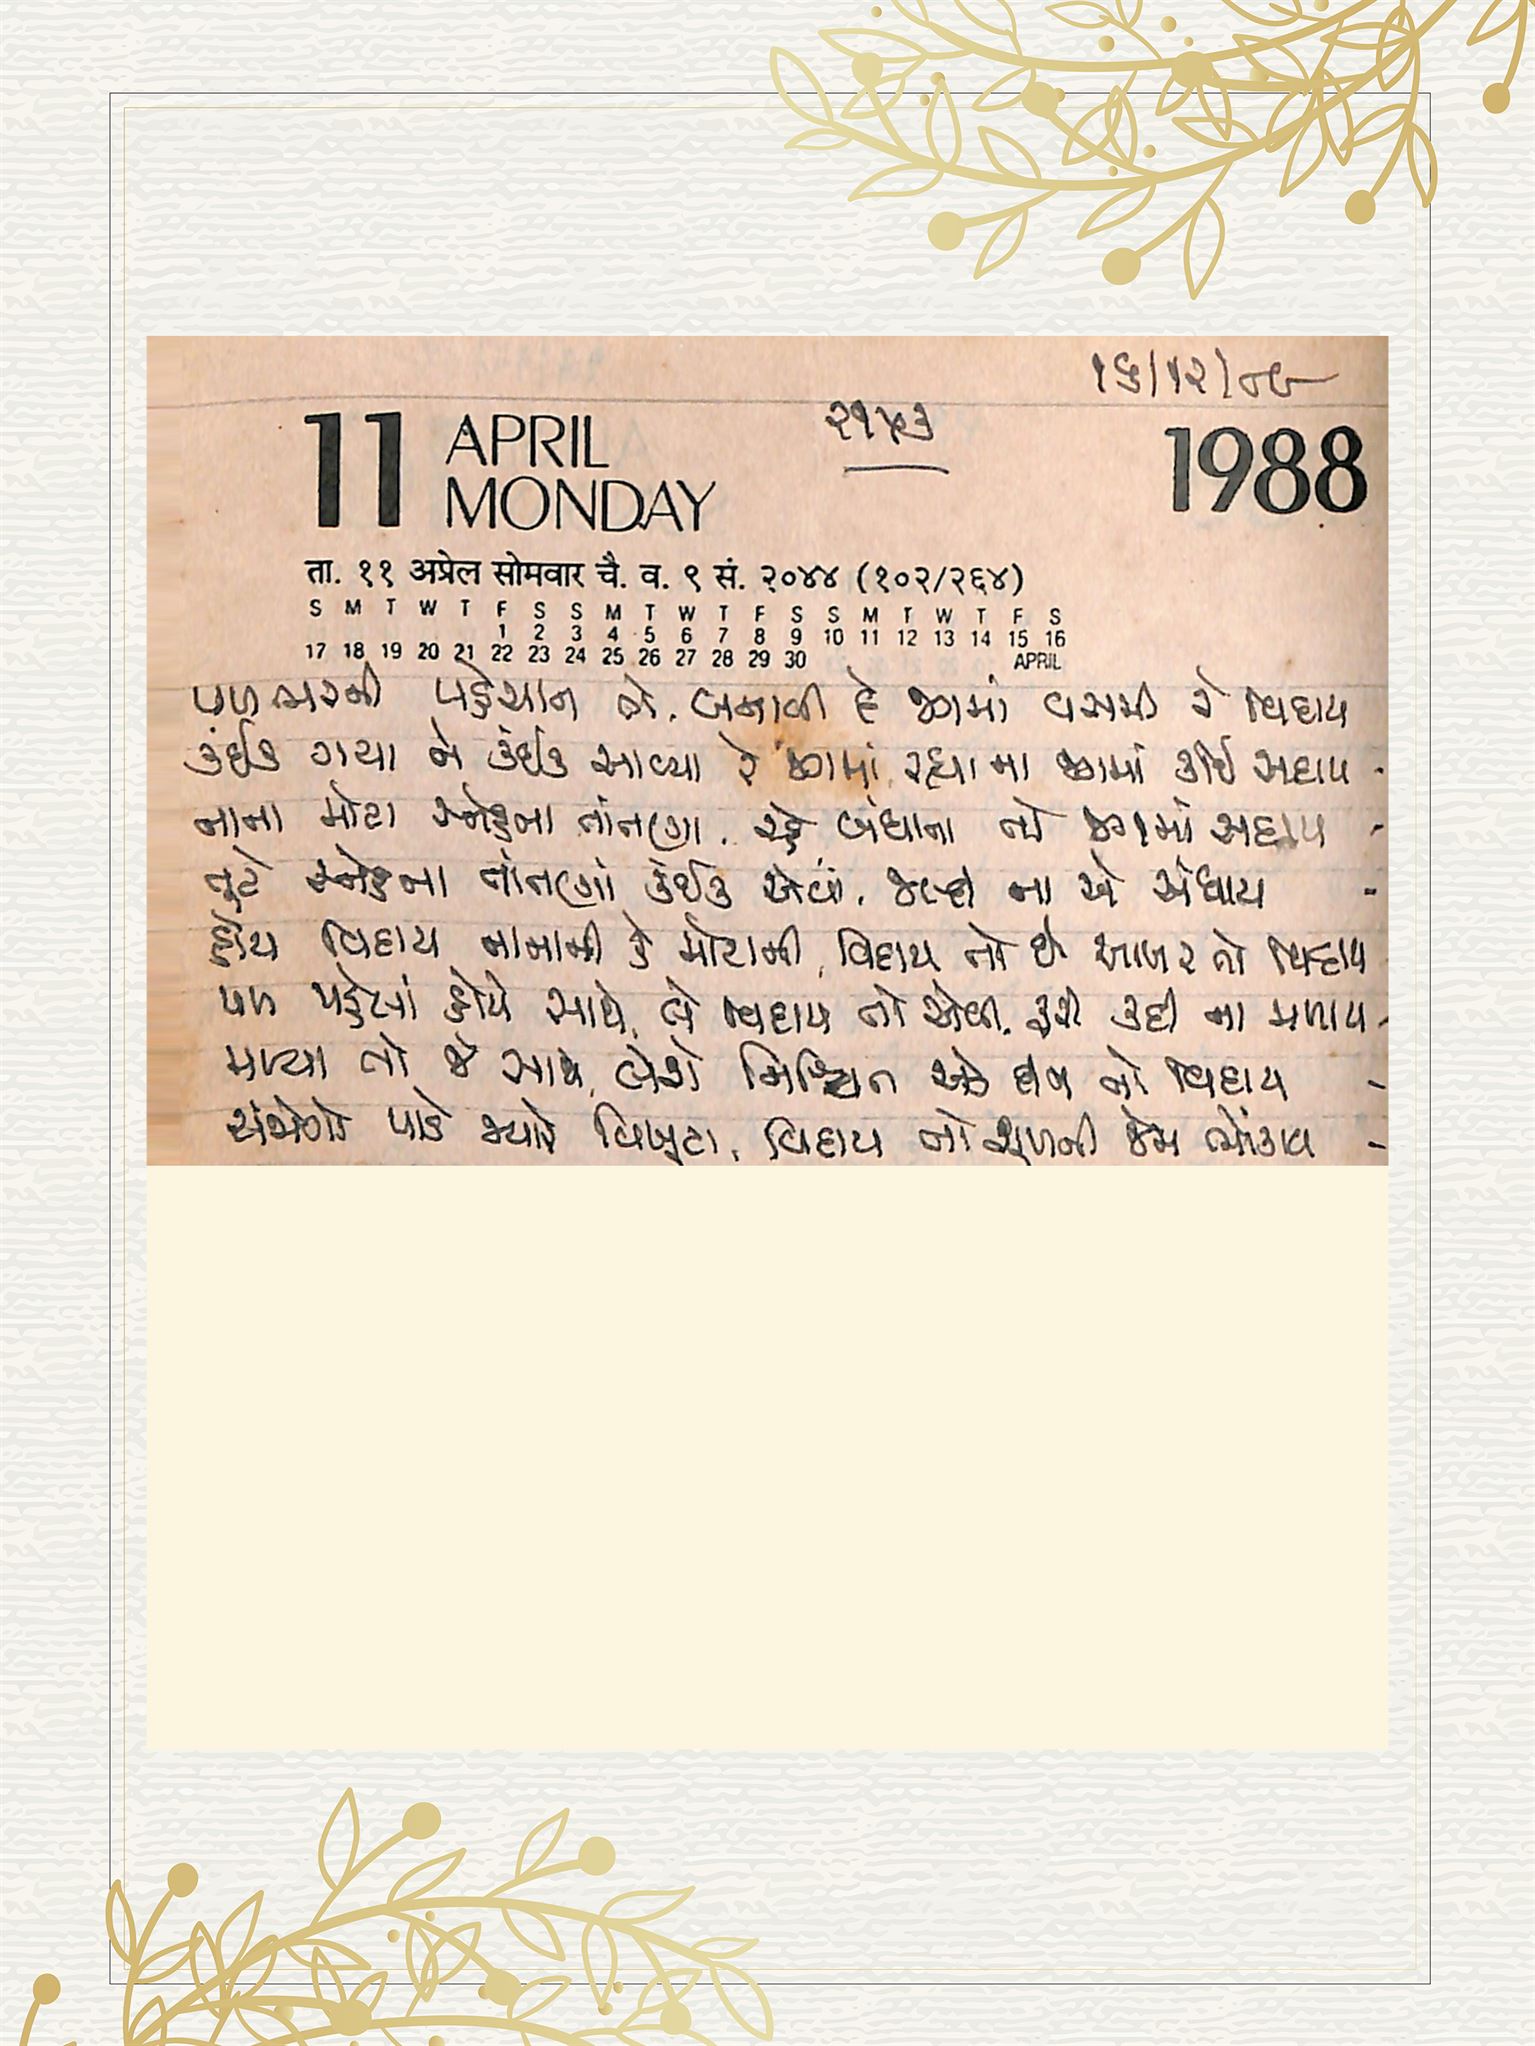 ૧૬/૧૨/૦૯
૨૧૫૩
11 APRIL 1988
MONDAY
ता. ११ अप्रेल सोमवार चै. व. ९ सं. २०४४ (१०२/२६४)
S M T W T F S S M T W T F S S M T W T F S
1 2 3 4 5 6 7 8 9 10 11 12 13 14 15 16
17 18 19 20 21 22 23 24 25 26 27 28 29 30 APRIL
પળભરની પહેચાન બે. બનાવી દે જગમાં વસમી રે વિદાય
કંઈક ગયા ને કંઈક આવ્યા રે જગમાં, રહ્યા ના જગમાં કોઈ સદાય -
નાના મોટા સ્નેહના તાંતણા. રહે બંધાતા તો જગમાં સદાય -
તૂટે સ્નેહના તાંતણાં કંઈક એવાં. જલ્દી ના એ સંધાય -
હોય વિદાય નાનાની કે મોટાની, વિદાય તો છે આખર તો વિદાય
પળ પહેલાં હોયે સાથે, લે વિદાય તો એવી. ફરી કદી ના મળાય -
મળ્યા તો જે સાથે, લેશે નિશ્ચિત એક દિન તો વિદાય -
સંજોગો પાડે જ્યારે વિખૂટા, વિદાય તો શૂળની જેમ ભોંકાય -